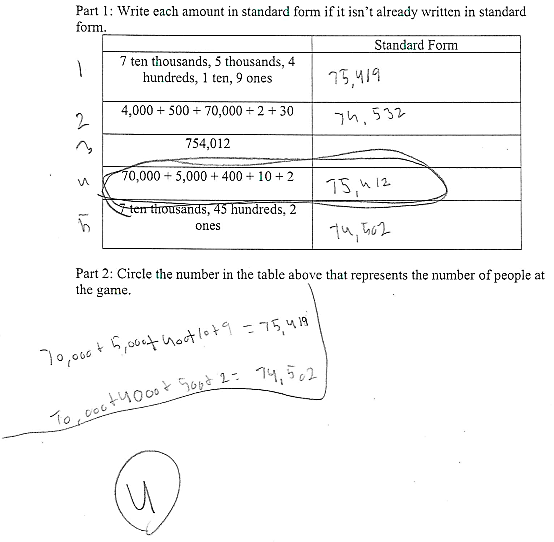 Part 1: Write each amount in standard form if it isn't already written in standard
form.
Standard Form
1
7 ten thousands, 5 thousands, 4
hundreds, 1 ten, 9 ones
75,419
2
4,000 + 500 + 70,000 + 2 + 30
74,532
3
754,012
4
70,000 + 5,000 + 400 + 10 + 2
75,412
5
7 ten thousands, 45 hundreds, 2
ones
74,502
Part 2: Circle the number in the table above that represents the number of people at
the game.
70,000 + 5,000 + 400 + 10 + 9 = 75,419
70,000 + 4000 + 500 + 2 = 74,502
4